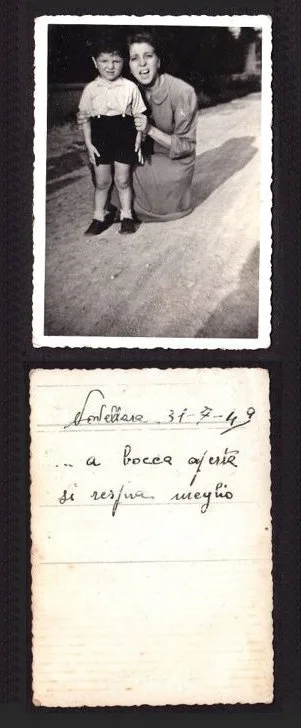 Novellara 31-7-49
... a bocca aperta
si respira meglio